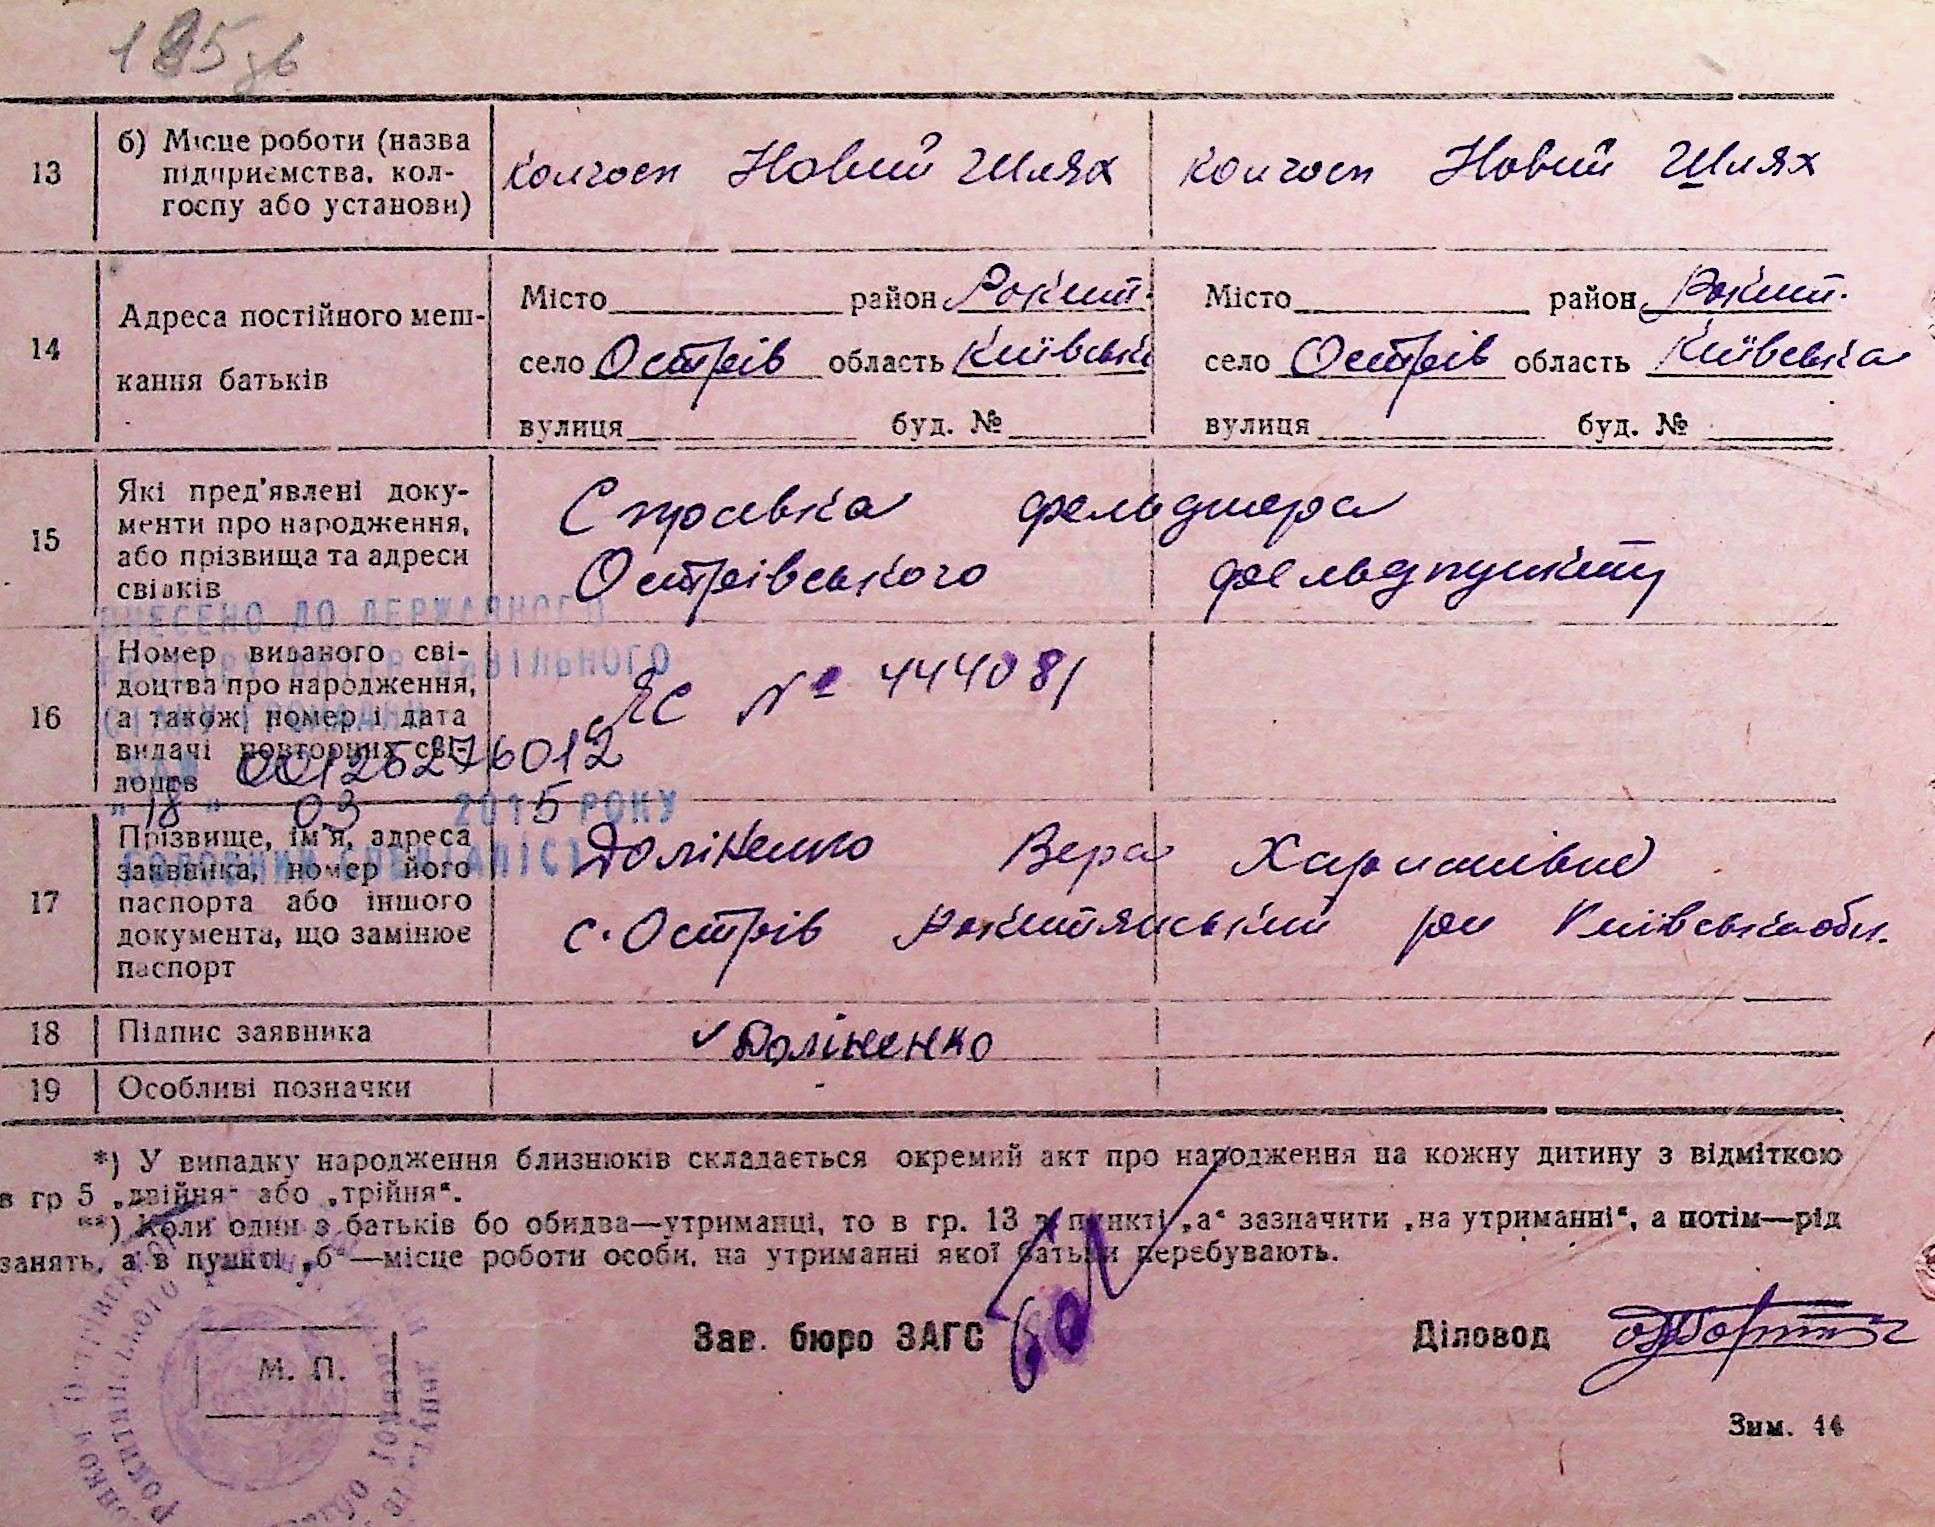 195 зв
13 б) Місце роботи (назва підприємства, колгоспу або установи) колгосп Новий Шлях колгосп Новий Шлях
14 Адреса постійного мешкання батьків
Місто район Рокит. Місто район Рокит.
село Острів область Київська село Острів область Київська
вулиця буд. № вулиця буд. №
15 Які пред'явлені документи про народження, або прізвища та адреси свідків
Справка фельдшера
Острівського фельдпункту
ВНЕСЕНО ДО ДЕРЖАВНОГО
РЕЄСТРУ АКТІВ ЦИВІЛЬНОГО
СТАНУ ГРОМАДЯН
16 Номер виданого свідоцтва про народження, а також номер і дата видачі повторних свідоцтв
ЯС № 444081
00125276012
"18" 03 2015 РОКУ
ГОЛОВНИЙ СПЕЦІАЛІСТ
17 Прізвище, ім'я, адреса заявника, номер його паспорта або іншого документа, що замінює паспорт
Долiненко Вера
с. Острів Рокитянський рн Київська обл.
18 Підпис заявника Долiненко
19 Особливі позначки -
*) У випадку народження близнюків складається окремий акт про народження на кожну дитину з відміткою
в гр 5 „двійня“ або „трійня“.
**) Коли один з батьків бо обидва—утриманці, то в гр. 13 в пункті „а“ зазначити „на утриманні“, а потім—рід
занять, а в пункті „б“—місце роботи особи, на утриманні якої батьки перебувають.
Зав. бюро ЗАГС Діловод
М. П.
Зим. 44